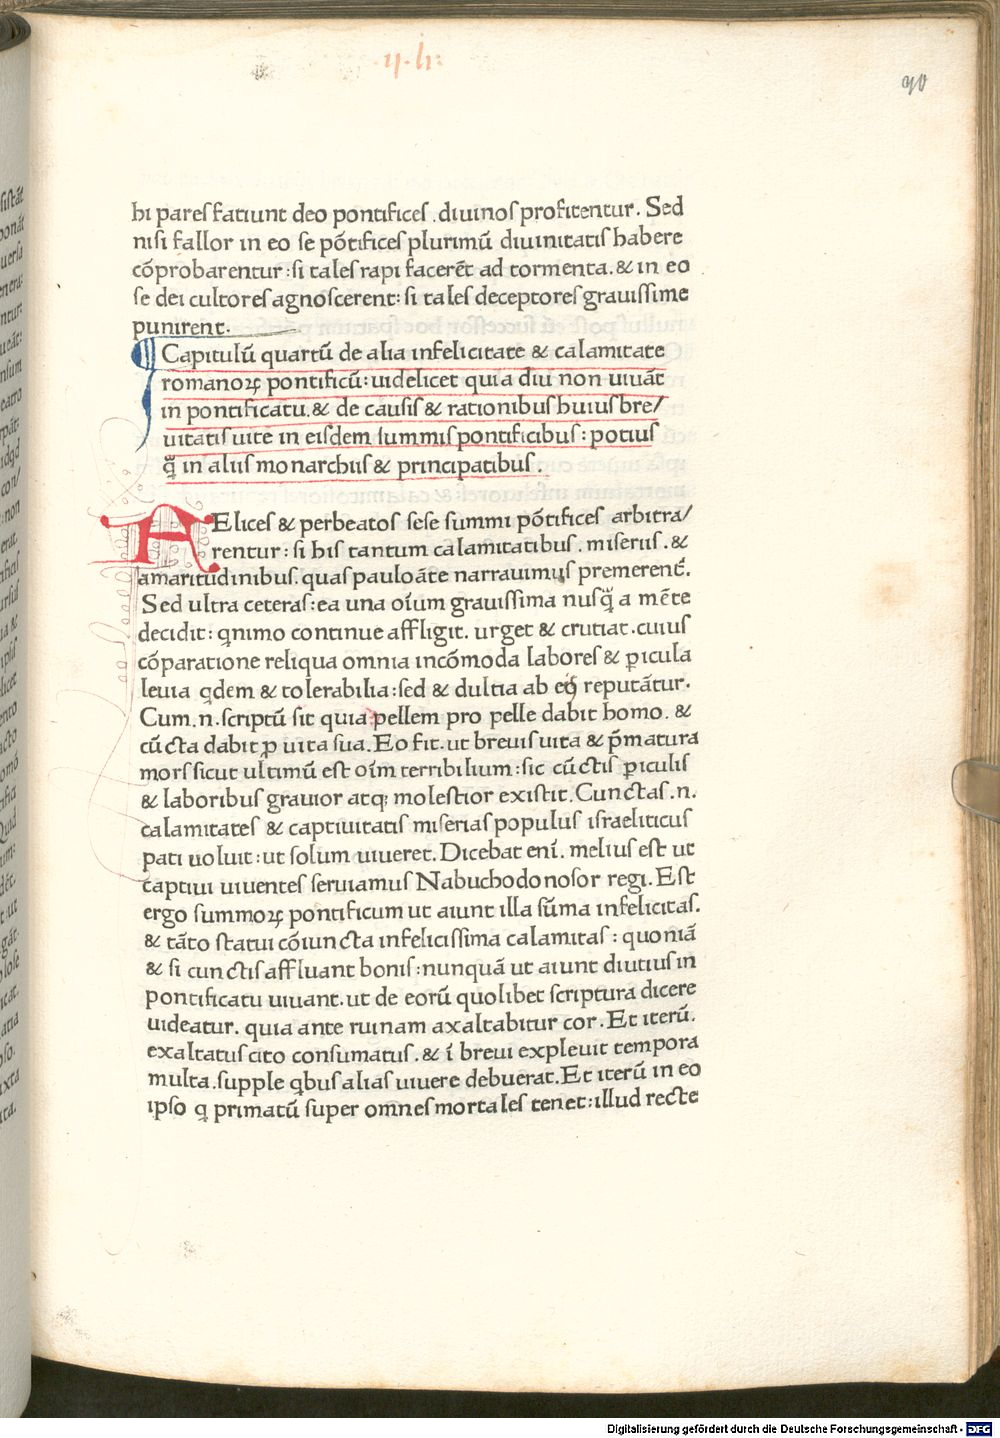 .ij.li:
90
bi pares fatiunt deo pontifices .diuinos profitentur. Sed
nisi fallor in eo se põtifices plurimũ diuinitatis habere
cõprobarentur:si tales rapi facerẽt ad tormenta.& in eo
se dei cultores agnoscerent:si tales deceptores grauissime
punirent.
Capitulũ quartũ de alia infelicitate & calamitate
romanoꝝ pontificũ:uidelicet quia diu non uiuãt
in pontificatu.& de causis & rationibus huius bre/
uitatis uite in eisdem summis pontificibus : potius
q̃ in aliis monarchiis & principatibus .
AElices & perbeatos sese summi põtifices arbitra/
rentur : si his tantum calamitatibus . miseriis . &
amaritudinibus.quas pauloãte narrauimus premerent̃.
Sed ultra ceteras:ea una oĩum grauissima nusq̃ a mẽte
decidit: qnimo continue affligit. urget & crutiat .cuius
cõparatione reliqua omnia incõmoda labores & ꝑicula
leuia qdem & tolerabilia:sed & dultia ab eoꝝ reputãtur.
Cum.n.scriptũ sit quia pellem pro pelle dabit homo. &
cũcta dabit ꝑ uita sua.Eo fit.ut breuis uita & p̃matura
mors sicut ultimũ est oĩm terribilium:sic cũctis ꝑiculis
& laboribus grauior atq; molestior existit.Cunctas .n.
calamitates & captiuitatis miserias populus israeliticus
pati uoluit:ut solum uiueret.Dicebat enĩ. melius est ut
captiui uiuentes seruiamus Nabuchodonosor regi.Est
ergo summoꝝ pontificum ut aiunt illa sũma infelicitas.
& tãto statui cõiuncta infelicissima calamitas : quoniã
& si cunctis affluant bonis:nunquã ut aiunt diutius in
pontificatu uiuant.ut de eorũ quolibet scriptura dicere
uideatur. quia ante ruinam axaltabitur cor . Et iterũ.
exaltatus cito consumatus . & ĩ breui expleuit tempora
multa.supple qbus alias uiuere debuerat.Et iterũ in eo
ipso q primatũ super omnes mortales tenet:illud recte
Digitalisierung gefördert durch die Deutsche Forschungsgemeinschaft - DFG